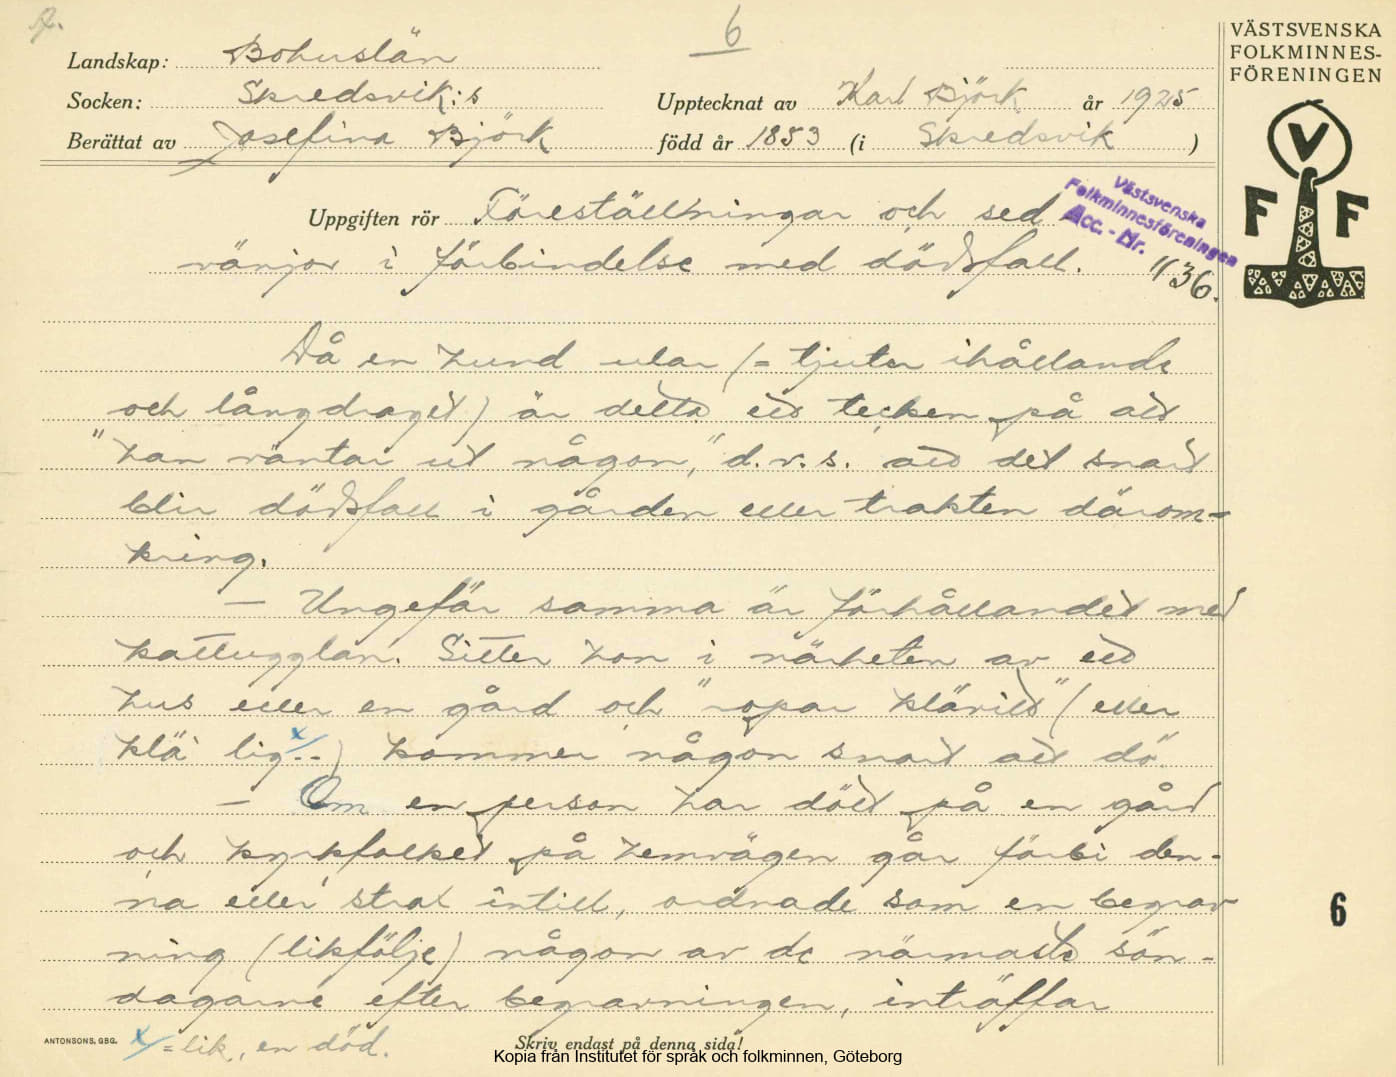 A.
6
VÄSTSVENSKA
FOLKMINNES-
FÖRENINGEN
V
F F
Landskap: Bohuslän
Socken: Skredsvik:s Upptecknat av Karl Björk år 1925
Berättat av Josefina Björk född år 1853 (i Skredsvik )
Västsvenska
Folkminnesföreningen
Acc. - Nr. 1136.
Uppgiften rör Föreställningar och sed
vänjor i förbindelse med dödsfall.
Då en hund ular (= tjuter ihållande
och långdraget) är detta ett tecken på att
"han väntar ut någon," d.v.s. att det snart
blir dödsfall i gården eller trakten därom=
kring.
— Ungefär samma är förhållandet med
kattugglan. Sitter hon i närheten av ett
hus eller en gård och "ropar klävitt" (eller
klä' lig x/..) kommer någon snart att dö.
— Om en person har dött på en gård
och kyrkfolket på hemvägen går förbi den-
na eller strax intill, ordnade som en begrav
ning (likfölje) någon av de närmaste sön-
dagarne efter begravningen, inträffar
ANTONSONS, GBG. x/ = lik, en död. Skriv endast på denna sida!
Kopia från Institutet för språk och folkminnen, Göteborg
6